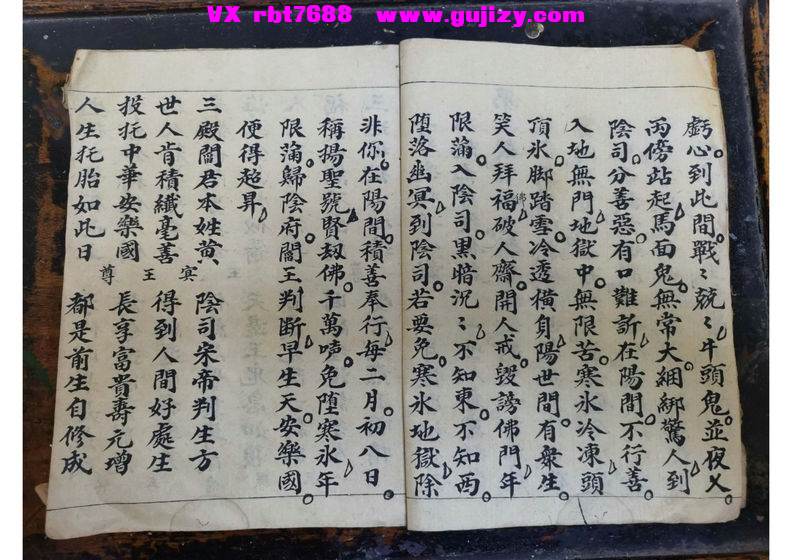 VX rbt7688 www.gujizy.com
虧心到此間戰〻兢〻牛頭鬼並夜乂
両傍站起馬面鬼無常大綑綁驚人到
陰司分善惡有口難訴在陽間不行善
入地無門地獄中無限苦寒氷冷凍頭
頂氷脚踏雪冷透橫身陽世間有衆生
笑人拜福破人齋開人戒毀謗佛門年
佛
限蒲入陰司黒暗況〻不知東不知西
墮落幽冥到陰司若要免寒氷地獄除
非你在陽間積善奉行每二月初八日
稱揚聖號賢刼佛千萬声免墮寒氷年
限蒲歸陰府閻王判断早生天安樂國
便得超昇
三殿閻君本姓黃、 陰司宋帝判生方
世人肯積纎毫善 得到人間好處生
冥王尊
投托中華安樂國 長享富貴壽元增
人生托胎如此日 都是前生自修成